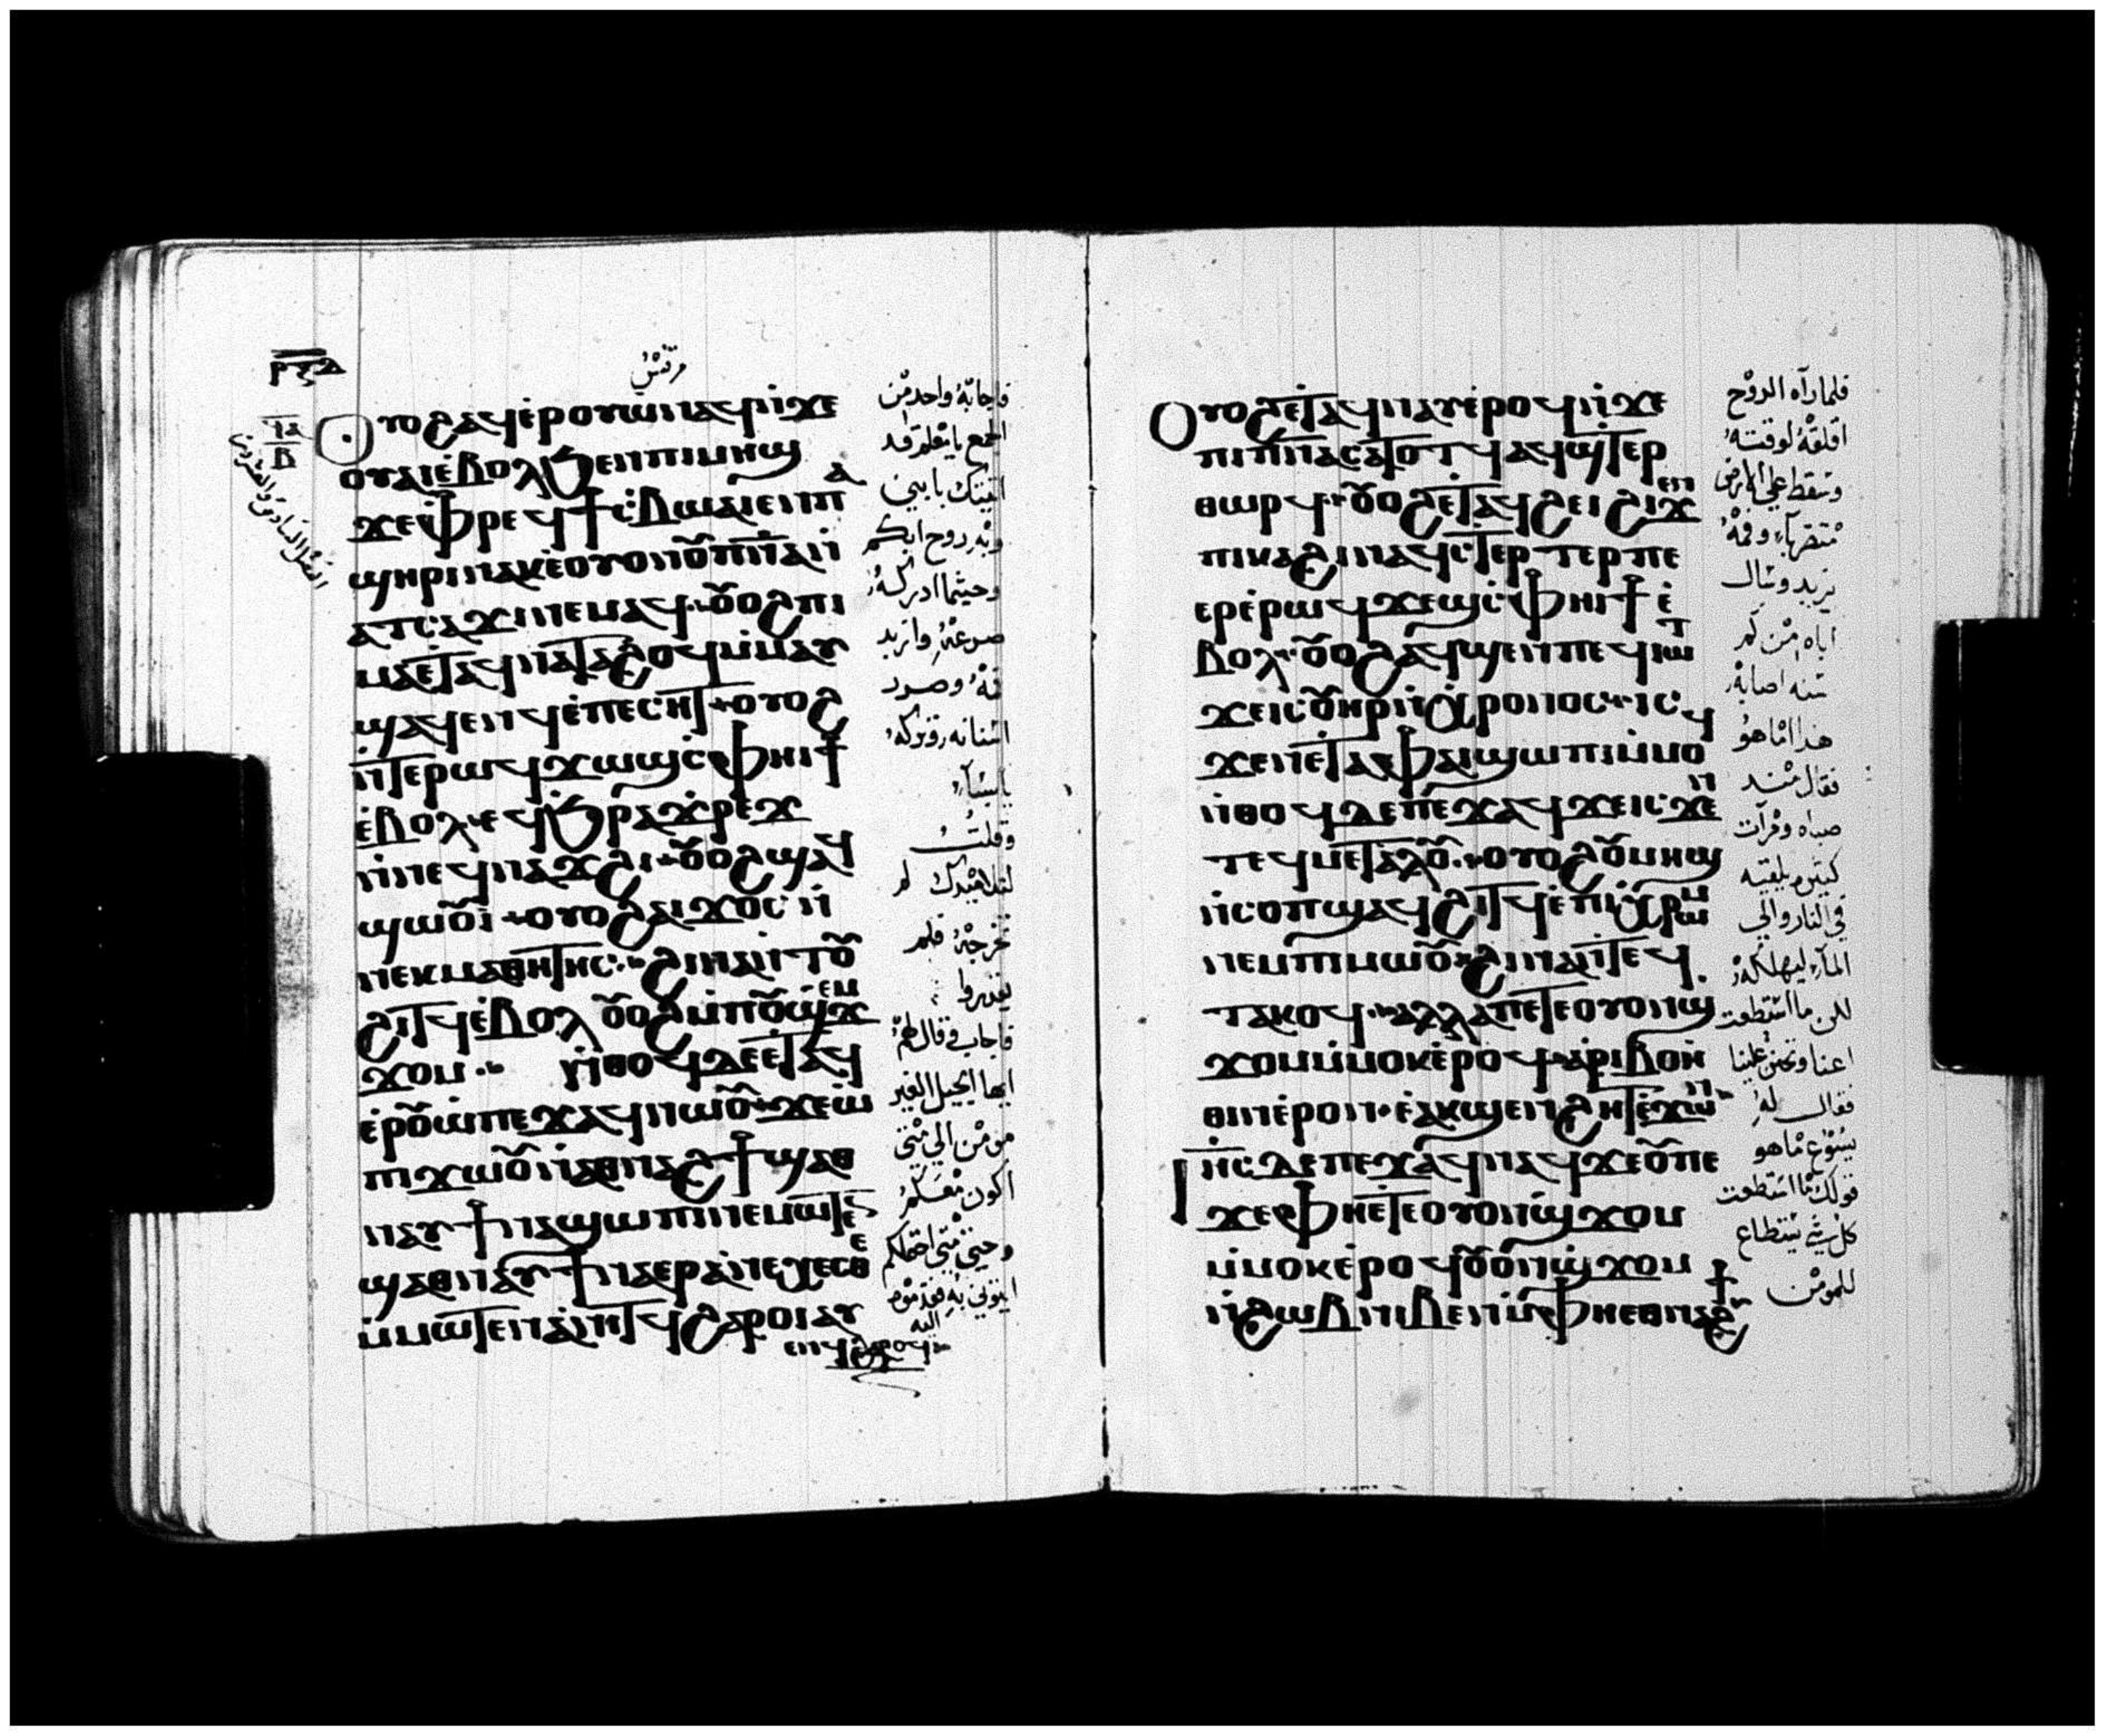 مرقس
ⲣⲝⲇ
Ⲟⲩⲟϩ ⲁϥⲉⲣⲟⲩⲱ ⲛⲁϥ ⲛ̇ϫⲉ
ⲟⲩⲁⲓ ⲉ̇ⲃⲟⲗ ϧⲉⲛ ⲡⲓⲙⲏϣ
ϫⲉ ⲫⲣⲉϥϯⲥⲃⲱ ⲁⲓⲉⲛ ⲡⲁ
ϣⲏⲣⲓ ⲛⲁⲕ ⲉ̇ⲟⲩⲟⲛ ⲟⲩ̅ⲡ̅ⲛ̅ⲁ̅ ⲛ̇
ⲁⲧⲥⲁϫⲓ ⲛⲉⲙⲁϥ ⲟⲩⲟϩ ⲡⲓ
ⲙⲁ ⲉⲧⲁϥⲛⲁⲧⲁϩⲟϥ ⲙ̇ⲙⲁⲩ
ϣⲁϥⲉⲛϥ ⲉ̇ⲡⲉⲥⲏⲧ ⲟⲩⲟϩ
ⲛ̇ⲧⲉⲣⲱϥ ϫⲱϣ ⲥ̇ⲫⲏⲓϯ
ⲉ̇ⲃⲟⲗ ⲉϥϧⲣⲁϫⲣⲉϫ
ⲛ̇ⲛⲉϥⲛⲁϫϩⲓ ⲟⲩⲟϩ ϣⲁϥ
ϣⲱⲟⲩⲓ̇ ⲟⲩⲟϩ ⲁⲓϫⲟⲥ ⲛ̇
ⲛⲉⲕⲙⲁⲑⲏⲧⲏⲥ ϩⲓⲛⲁ ⲛ̇ⲧⲟⲩ
ϩⲓⲧϥ ⲉ̇ⲃⲟⲗ ⲟⲩⲟϩ ⲙ̇ⲡⲟⲩϣ̇ϫⲉⲙ
ϫⲟⲙ Ⲛ̇ⲑⲟϥ ⲇⲉ ⲉⲧⲁϥ
ⲉ̇ⲣⲟⲩⲱ̇ ⲡⲉϫⲁϥ ⲛⲱⲟⲩ ϫⲉ ⲱ̇
ⲡⲓϫⲱⲟⲩ ⲛ̇ⲁⲑⲛⲁϩϯ ϣⲁⲑ
ⲛⲁⲩ ϯⲛⲁϣⲱⲡⲓ ⲛⲉⲙⲱⲧⲉⲛ
ϣⲁⲑⲛⲁⲩ ϯⲛⲁⲉⲣⲁⲛⲉⲭⲉⲥⲑⲉ
ⲙ̇ⲙⲱⲧⲉⲛ ⲁ̇ⲛⲓⲧϥ ϩⲁⲣⲟⲓ ⲁⲩ
ⲉⲛϥ ϩⲁⲣⲟϥ
فاجابه واحد من
الجمع يا معلم قد
اتيتك بابني
وبه روح ابكم
وحيثما ادركه
صرعه وازبد
فمه وصرر
اسنانه وتركه
يابسًا
وقلت
لتلاميذك
تخرجه فلم
يقدروا
فاجاب وقال لهم
ايها الجيل الغير
مومن الى متى
اكون معكم
وحتى متى احتملكم
ايتوني به فقدموه
اليه
Ⲟⲩⲟϩ ⲉⲧⲁϥⲛⲁⲩ ⲉ̇ⲣⲟϥ ⲛ̇ϫⲉ
ⲡⲓⲡ̅ⲛ̅ⲁ̅ ⲥⲁⲧⲟⲧϥ ⲁϥϣⲧⲉⲣ
ⲑⲱⲣϥ ⲟⲩⲟϩ ⲉⲧⲁϥϩⲉⲓ ϩⲓϫⲉⲛ
ⲡⲓⲕⲁϩⲓ ⲛⲁϥⲥⲧⲉⲣⲧⲉⲣ ⲡⲉ
ⲉⲣⲉ̇ⲣⲱϥ ϫⲉϣ ⲥ̇ⲫⲏⲓϯ ⲉ̇
ⲃⲟⲗ ⲟⲩⲟϩ ⲁϥϣⲉⲛ ⲡⲉϥⲓⲱⲧ
ϫⲉ ⲓⲥ ⲟⲩⲏⲣ ⲛ̇ⲭⲣⲟⲛⲟⲥ ⲓⲥ
ϫⲉⲛ ⲉⲧⲁ ⲫⲁⲓ ϣⲱⲡⲓ ⲙ̇ⲙⲟϥ
ⲛ̇ⲑⲟϥ ⲇⲉ ⲡⲉϫⲁϥ ϫⲉ ⲓⲥϫⲉⲛ
ⲧⲉϥⲙⲉⲧⲁⲗⲟⲩ ⲟⲩⲟϩ ⲟⲩⲙⲏϣ
ⲛ̇ⲥⲟⲡ ϣⲁϥϩⲓⲧϥ ⲉ̇ⲡⲓⲭⲣⲱⲙ
ⲛⲉⲙ ⲡⲓⲙⲱⲟⲩ ϩⲓⲛⲁ ⲛ̇ⲧⲉϥ
ⲧⲁⲕⲟϥ ⲁⲗⲗⲁ ⲡⲉⲧⲉ ⲟⲩⲟⲛϣ
ϫⲟⲙ ⲙ̇ⲙⲟⲕ ⲉ̇ⲣⲟϥ ⲁⲣⲓⲃⲟⲏ̇
ⲑⲓⲛ ⲉ̇ⲣⲟⲛ ⲉ̇ⲁⲕϣⲉⲛϩⲏⲧ ⲉ̇ϫⲱⲛ
Ⲓⲏ̅ⲥ̅ ⲇⲉ ⲡⲉϫⲁϥ ⲛⲁϥ ϫⲉ ⲟⲩ ⲡⲉ
ϫⲉ ⲫⲏⲉⲧⲉ ⲟⲩⲟⲛϣ̇ϫⲟⲙ
ⲙ̇ⲙⲟⲕ ⲉ̇ⲣⲟϥ ⲟⲩⲟⲛϣ̇ϫⲟⲙ
ⲛ̇ϩⲱⲃ ⲛⲓⲃⲉⲛ ⲙ̇ⲫⲏⲉⲑⲛⲁϩϯ
فلما رآه الروح
اقلقه لوقته
وسقط على الارض
يزبد وسال
اباه من كم
سنه اصابه
هذا اما هو
فقال منذ
صباه ومرات
كثيره يلقيه
في النار والى
المآء ليهلكه
لكن ما استطعت
اعنا وتحنن علينا
فقال له
يسوع ما هو
قولك ما استطعت
كل شي يستطاع
للمومن